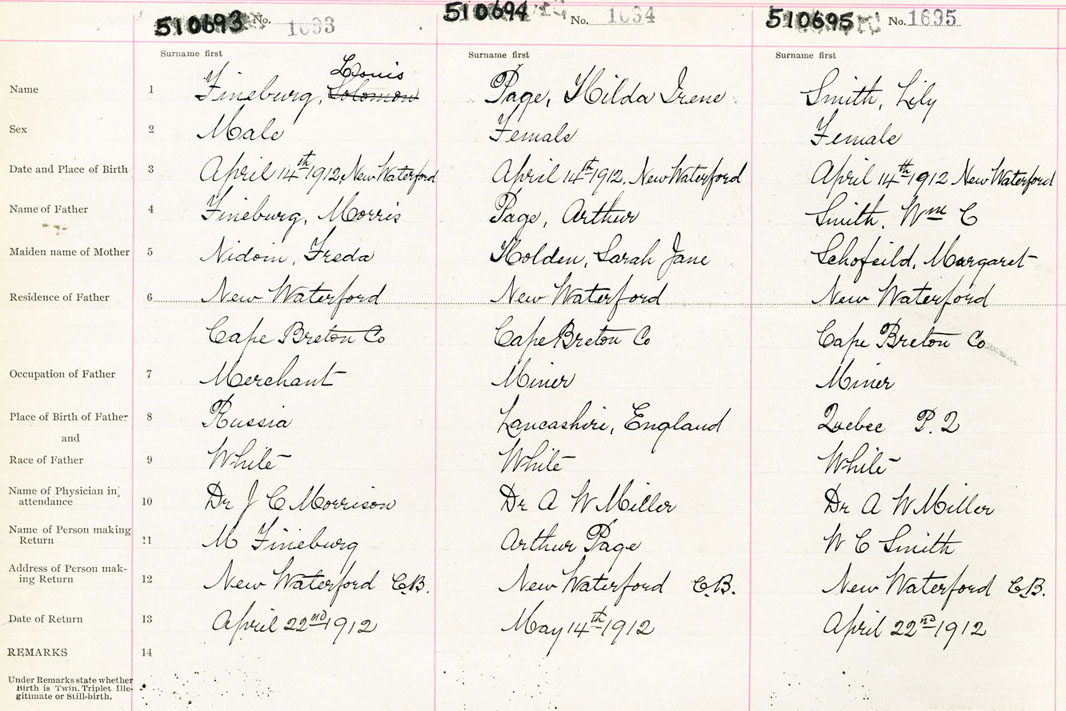 510693 No. 1693 510694 No. 1694 510695 No. 1695
Surname first Surname first Surname first
Louis
Name 1 Fineburg, Solomon Page, Hilda Irene Smith, Lily
Sex 2 Male Female Female
Date and Place of Birth 3 April 14th 1912, New Waterford April 14th 1912, New Waterford April 14th 1912 New Waterford
Name of Father 4 Fineburg, Morris Page, Arthur Smith, Wm C
Maiden name of Mother 5 Nidoin, Freda Holden, Sarah Jane Schofeild, Margaret
Residence of Father 6 New Waterford New Waterford New Waterford
Cape Breton Co Cape Breton Co Cape Breton Co
Occupation of Father 7 Merchant Miner Miner
Place of Birth of Father 8 Russia Lancashire, England Quebec P.Q
and
Race of Father 9 White White White
Name of Physician in attendance 10 Dr J C Morrison Dr A W Miller Dr A W Miller
Name of Person making Return 11 M Fineburg Arthur Page W C Smith
Address of Person mak-
ing Return 12 New Waterford C.B. New Waterford C.B. New Waterford C.B.
Date of Return 13 April 22nd 1912 May 14th 1912 April 22nd 1912
REMARKS 14
Under Remarks state whether
Birth is Twin, Triplet Ille-
gitimate or Still-birth.